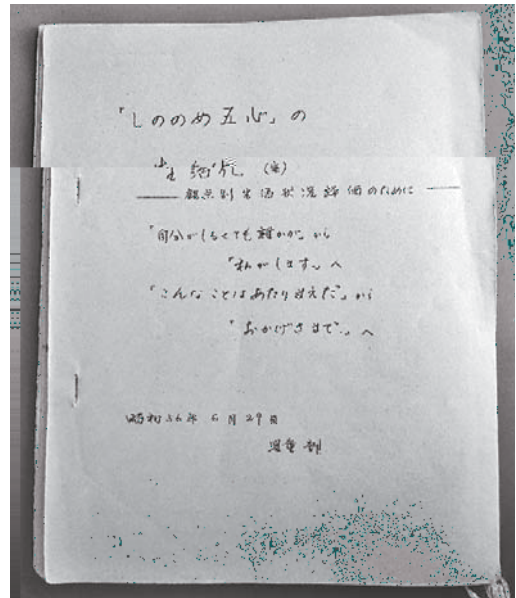 「しののめ五心」の
(案)
観点別 状況評価のために
「自分がしなくても誰かが」から
「私がします」へ
「こんなことはあたりまえだ」から
「おかげさまで」へ
昭和56年6月29日
児童部